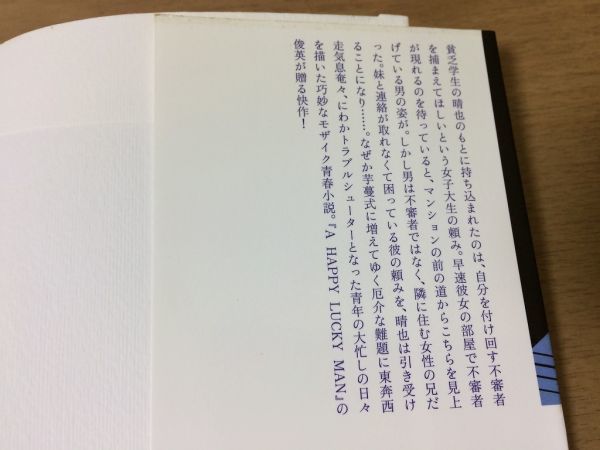 貧乏学生の晴也のもとに持ち込まれたのは、自分を付け回す不審者
を捕まえてほしいという女子大生の頼み。早速彼女の部屋で不審者
が現れるのを待っていると、マンションの前の道からこちらを見上
げている男の姿が。しかし男は不審者ではなく、隣に住む女性の兄だ
った。妹と連絡が取れなくて困っている彼の頼みを、晴也は引き受け
ることになり……。なぜか芋蔓式に増えてゆく厄介な難題に東奔西
走気息奄々、にわかトラブルシューターとなった青年の大忙しの日々
を描いた巧妙なモザイク青春小説。『A HAPPY LUCKY MAN』の
俊英が贈る快作！